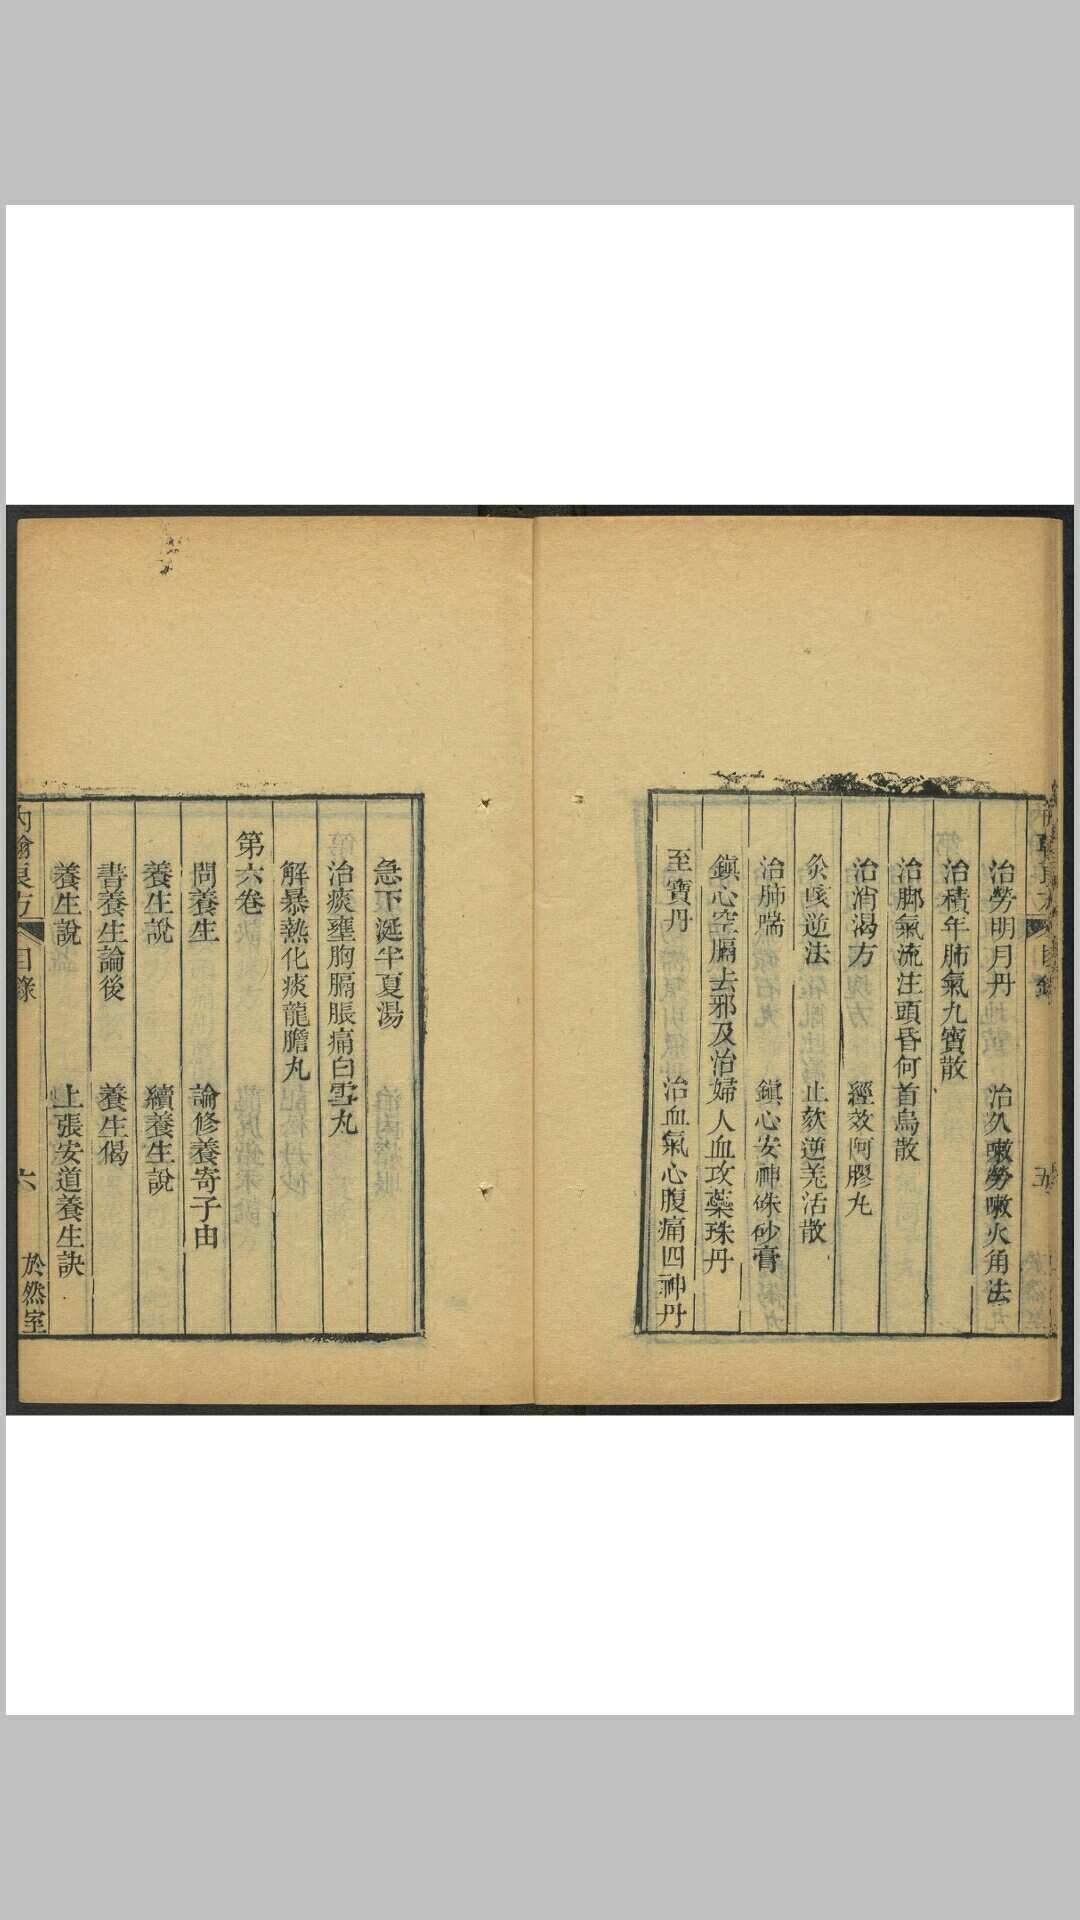 目錄
五
治勞明月丹　治久嗽勞嗽火角法
治積年肺氣九寶散
治脚氣流注頭昏何首烏散
治消渴方　經效阿膠丸
灸咳逆法　止欬逆羌活散
治肺喘　鎮心安神硃砂膏
鎮心空膈去邪及治婦人血攻藥珠丹
至寶丹　治血氣心腹痛四神丹
急下涎半夏湯
治痰壅胸膈脹痛白雪丸
解暴熱化痰龍膽丸
第六卷
問養生　論修養寄子由
養生說　續養生說
書養生論後　養生偈
養生說　上張安道養生訣
內翰良方　目錄　六　於然室